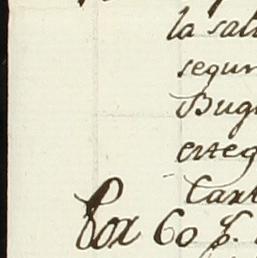 la sal
segur
Bug
enteg
Cart
Por 60 f.